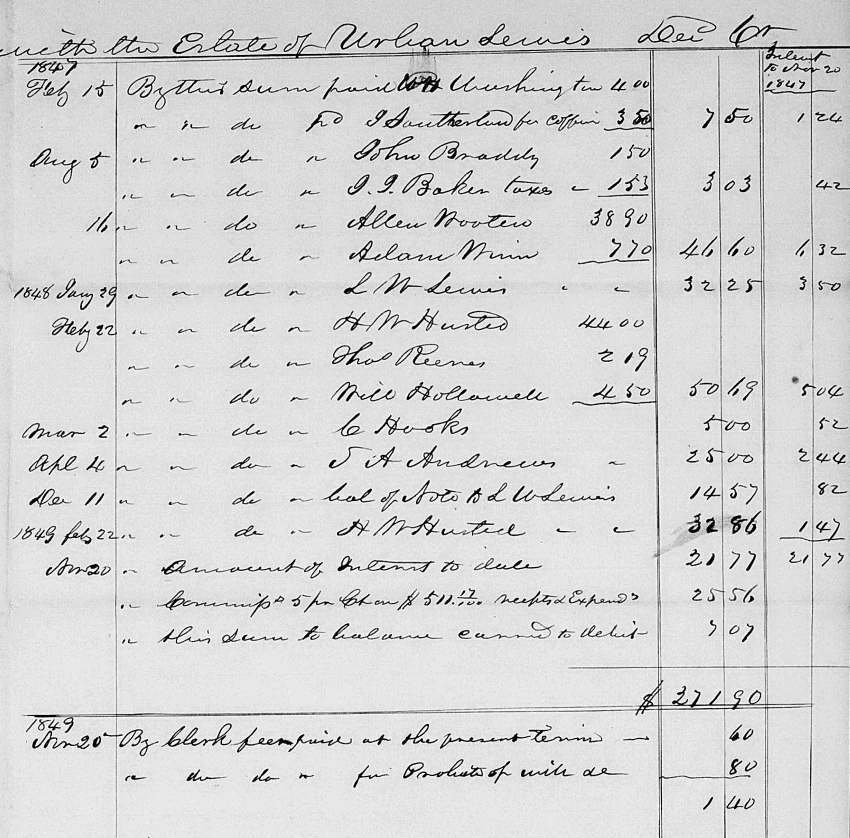 with the Estate of Urban Lewis Decd Cr
1847 Interest to Nov 20 1847
Feby 15 By this sum paid Washington 4 00
" " do pd J Southerland for coffin 3 50 7 50 1 24
Aug 5 " " do " John Braddy 1 50
" " do " J. J. Baker taxes " 1 53 3 03 42
16 " " do " Allen Wooten 38 90
" " do " Adam Winn 7 70 46 60 6 32
1848 Jany 29 " " do " L W Lewis " " 32 25 3 50
Feby 22 " " do " H W Husted 44 00
" " do " Thos Reeves 2 19
" " do " Will Hollowell 4 50 50 69 5 04
Mar 2 " " do " C Hooks 5 00 52
Apl 4 " " do " J A Andrews " 25 00 2 44
Dec 11 " " do " bal of Note to L W Lewis 14 57 82
1849 feby 22 " " do " H W Husted " " 32 86 1 47
Nov 20 " Amount of Interest to date 21 77 21 77
" Commiss 5 pr Ct on $ 511.17/100 receipts & Expends 25 56
" this sum to balance carried to debit 7 07
$ 271 90
1849
Nov 20 By Clerk fees paid at the present term 60
" do do " for Probate of will &c 80
1 40